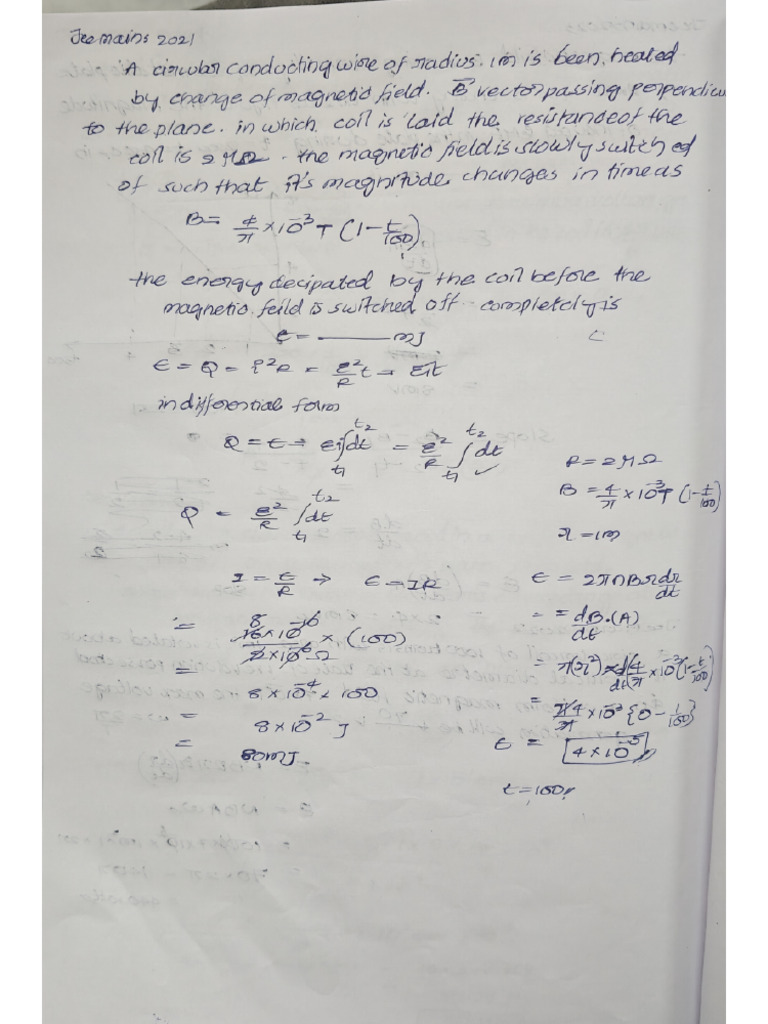 Jee mains 2021
A circular conducting wire of radius 1m is been heated
by change of magnetic field. B vector passing perpendicu
to the plane. in which coil is laid the resistance of the
coil is 2 μΩ. the magnetic field is slowly switched
of such that it's magnitude changes in time as
B = 4/π × 10⁻³ T (1 - t/100)
the energy decipated by the coil before the
magnetic feild is switched off completely is
E = ______ mJ
E = Q = i²R = ε²/R t = εit
in differential form
Q = E → εi ∫dt = ε²/R ∫dt ✓
t₂ t₁ t₂ t₁
R = 2μΩ
B = 4/π × 10⁻³ T (1 - t/100)
r = 1m
Q = ε²/R ∫dt
t₂ t₁
I = ε/R → ε = IR
ε = 2πnBr dr/dt
= dB.(A)/dt
= 16×10⁻¹⁰/2×10⁻⁶Ω × (100)
8
= π(r²) × d/dt (4/π × 10⁻³ (1 - t/100)
= 8 × 10⁻⁴ × 100
= π4/π × 10⁻³ {0 - 1/100}
= 8 × 10⁻² J
ε = 4 × 10⁻⁵
= 80mJ
t = 100